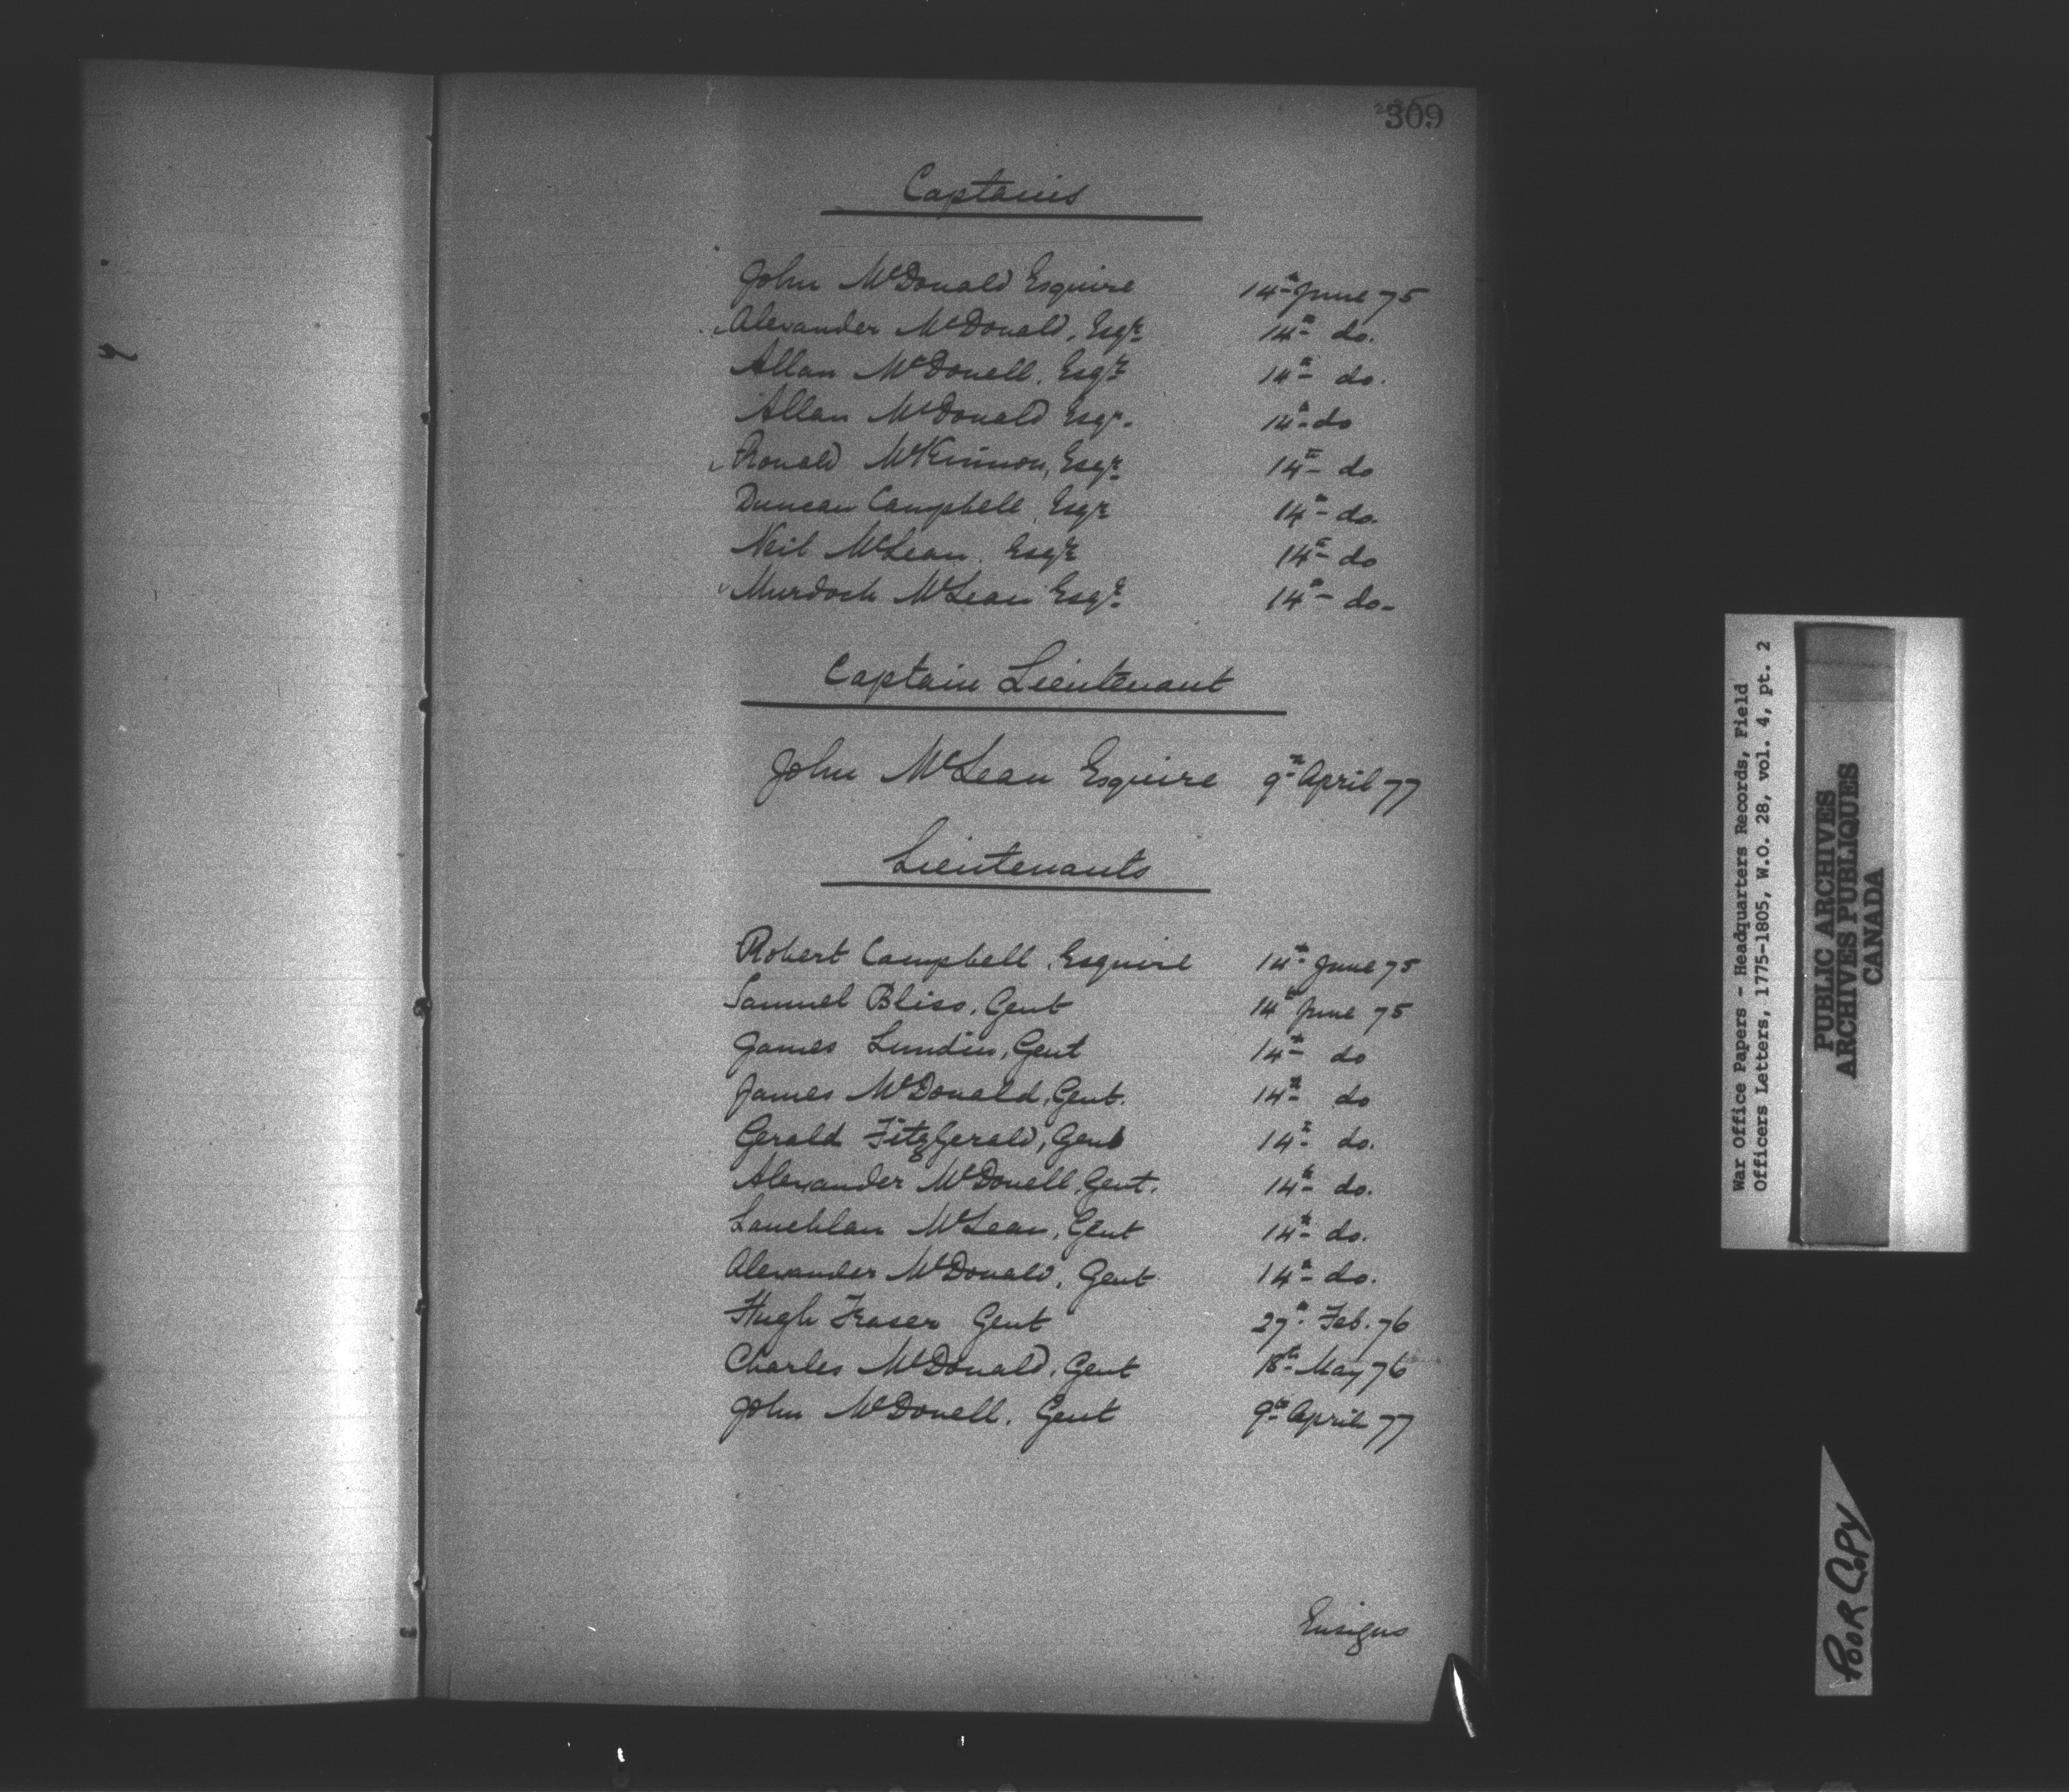 309
Captains
John McDonald Esquire 14th June 75
Alexander McDonald, Esqr. 14th do.
Allan McDonell, Esqr. 14th do.
Allan McDonald Esqr. 14th do
Ronald McKinnon, Esqr. 14th do
Duncan Campbell, Esqr 14th do.
Neil McLean, Esqr. 14th do
Murdoch McLean Esqr. 14th do-
Captain Lieutenant
John McLean Esquire 9th April 77
Lieutenants
Robert Campbell, Esquire 14th June 75
Samuel Bliss, Gent 14th June 75
James Lundin, Gent 14th do
James McDonald, Gent. 14th do
Gerald FitzGerald, Gent 14th do.
Alexander McDonell, Gent. 14th do.
Lauchlan McLean, Gent 14th do.
Alexander McDonald, Gent 14th do.
Hugh Fraser Gent 27th Feb. 76
Charles McDonald, Gent 18th May 76
John McDonell, Gent 9th April 77
Ensigns
War Office Papers - Headquarters Records, Field
Officers Letters, 1775-1805, W.O. 28, vol. 4, pt. 2
PUBLIC ARCHIVES
ARCHIVES PUBLIQUES
CANADA
POOR COPY